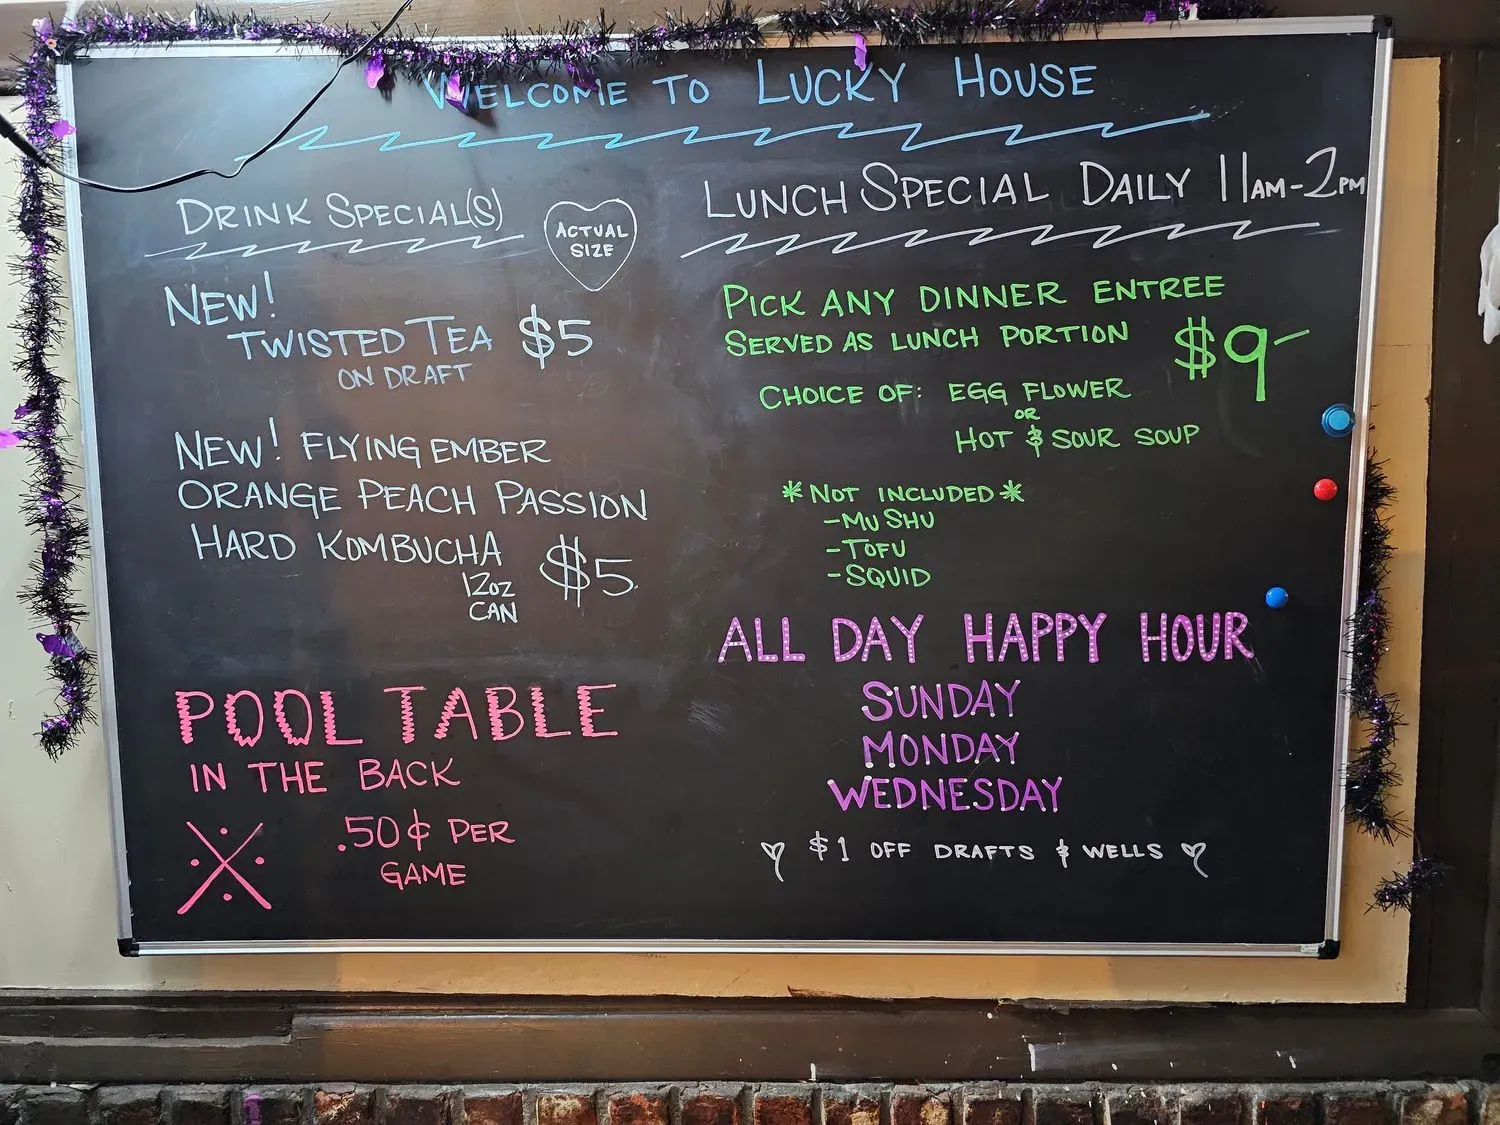 WELCOME TO LUCKY HOUSE
DRINK SPECIAL(S)
ACTUAL
SIZE
NEW!
TWISTED TEA $5
ON DRAFT
NEW! FLYING EMBER
ORANGE PEACH PASSION
HARD KOMBUCHA $5
12OZ
CAN
POOL TABLE
IN THE BACK
.50¢ PER
GAME
LUNCH SPECIAL DAILY 11AM-2PM
PICK ANY DINNER ENTREE
SERVED AS LUNCH PORTION $9-
CHOICE OF: EGG FLOWER
OR
HOT & SOUR SOUP
*NOT INCLUDED*
-MU SHU
-TOFU
-SQUID
ALL DAY HAPPY HOUR
SUNDAY
MONDAY
WEDNESDAY
$1 OFF DRAFTS & WELLS